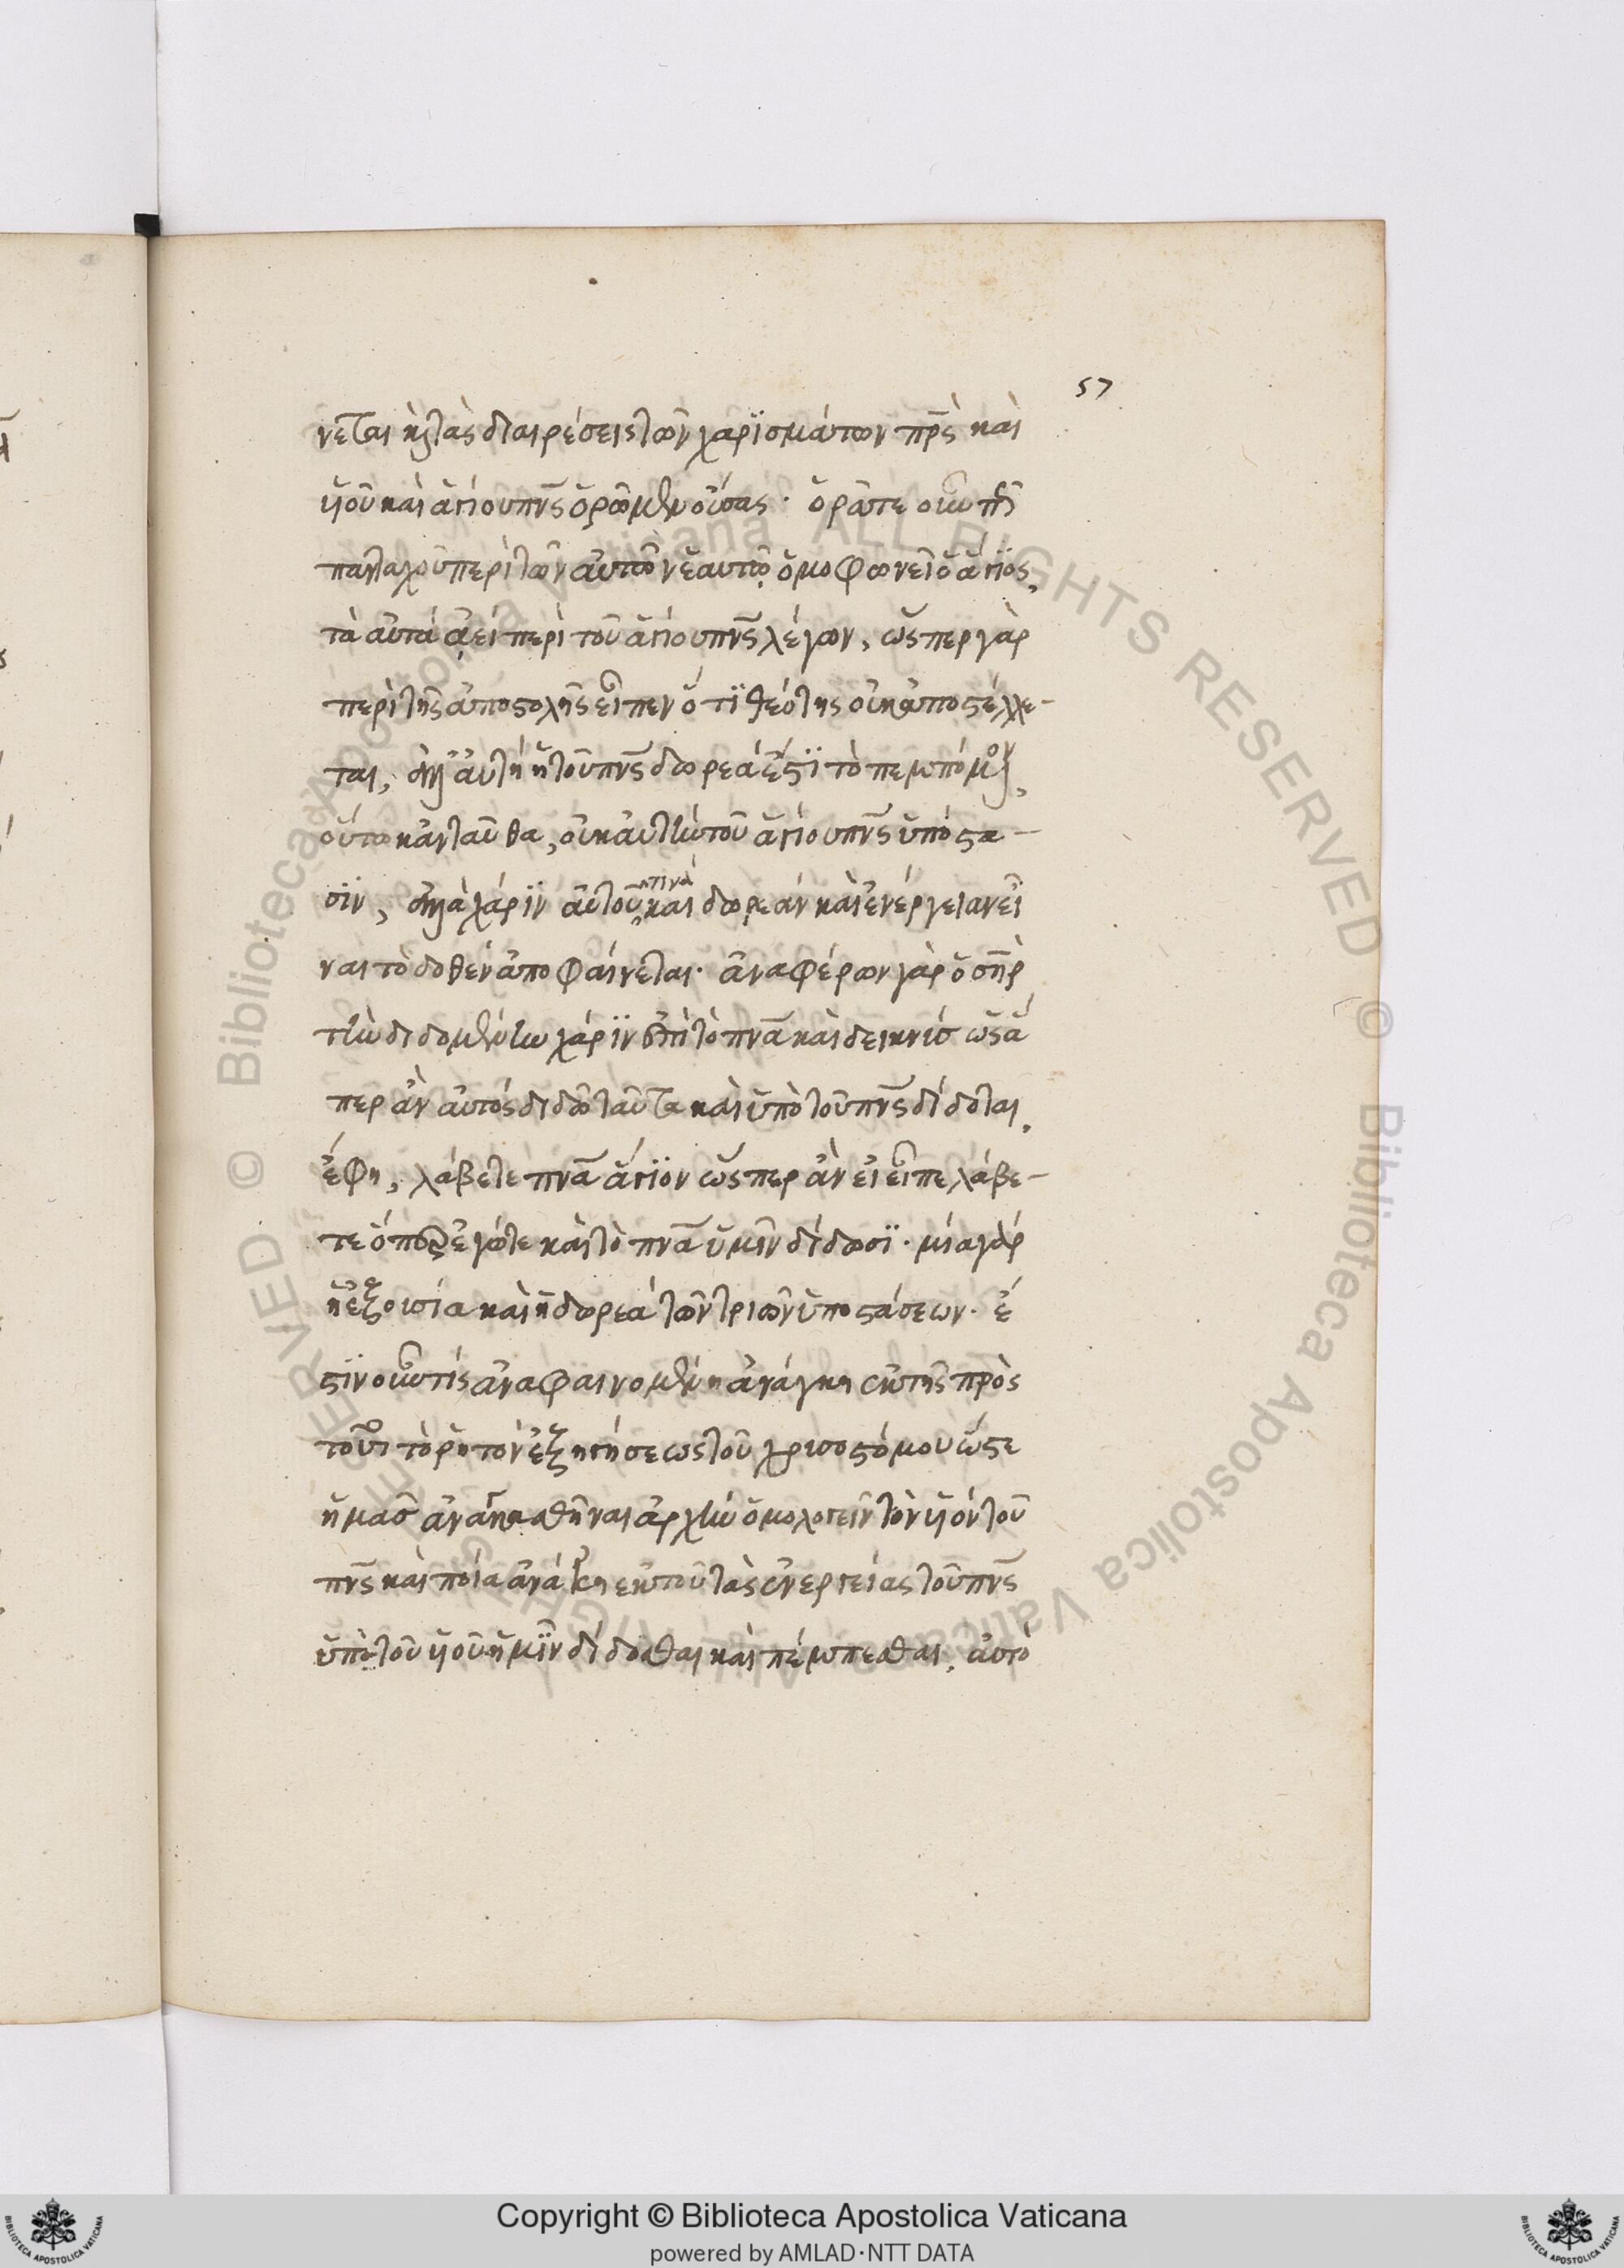 57
νεται κ(αὶ) τὰς διαιρέσεις τῶν χαρϊσμάτων πρ̅ς̀ καὶ
ϋἱοῦ καὶ ἁγίου πνς̅ ὁρῶμεν οὔσας· ὁρᾶτε οὖν πῶς
πανταχοῦ περὶ τῶν αὐτῶν ἑαυτῶ ὁμοφωνεῖ ὁ ἅγϊος,
τὰ αὐτὰ ἀεί περὶ τοῦ ἁγίου πνς̅ λέγων, ὥσπερ γὰρ
περὶ τῆς ἀποστολῆς εἶπεν ὅτϊ θεότης οὐκ ἀποστέλλε-
ται, ἀλλ' αὐτὴ ἡ τοῦ πνς̅ δωρεά ἐστϊ τὸ πεμπόμενον,
οὕτω κἀνταῦθα, οὐκ αὐτὴν τοῦ ἁγίου πνς̅ ὑπόστα-
σϊν, ἀλλὰ χάρϊν αὐτοῦ τινὰ καὶ δωρεάν καὶ ἐνέργειαν εἶ
ναι τὸ δοθέν ἀποφαίνεται· ἀναφέρων γὰρ ὁ σηρ̅
τὴν διδομένην χάρϊν ἐπὶ τὸ πνα̅ καὶ δεικνὺς ὡς ἅ
περ ἂν αὐτός διδῶ ταῦτα καὶ ὑπὸ τοῦ πνς̅ δίδοται,
ἔφη, λάβετε πνα̅ ἅγϊον ὥσπερ ἂν εἰ εἶπε λάβε-
τε ὅπερ ἐγώ τε καὶ τὸ πνα̅ ὑμῖν δίδωσϊ· μία γὰρ
ἡ ἐξουσία καὶ ἡ δωρεά τῶν τριῶν ὑποστάσεων· ἔ
στϊν οὖν τίς ἀναφαινομένη ἀνάγκη ἐκ τῆς πρὸς
τοῦτο τὸ ῥητὸν ἐξηγήσεως τοῦ χρυσοστόμου ὥστε
ἡμᾶς ἀναγκασθῆναι ἀρχὴν ὁμολογεῖν τὸν ϋἱόν τοῦ
πνς̅ καὶ ποία ἀνάγκη ἐκ τοῦ τὰς ἐνεργείας τοῦ πνς̅
ὑπὸ τοῦ ϋἱοῦ ἡμῖν δίδοσθαι καὶ πέμπεσθαι, αὐτὸ
Copyright © Biblioteca Apostolica Vaticana
powered by AMLAD·NTT DATA